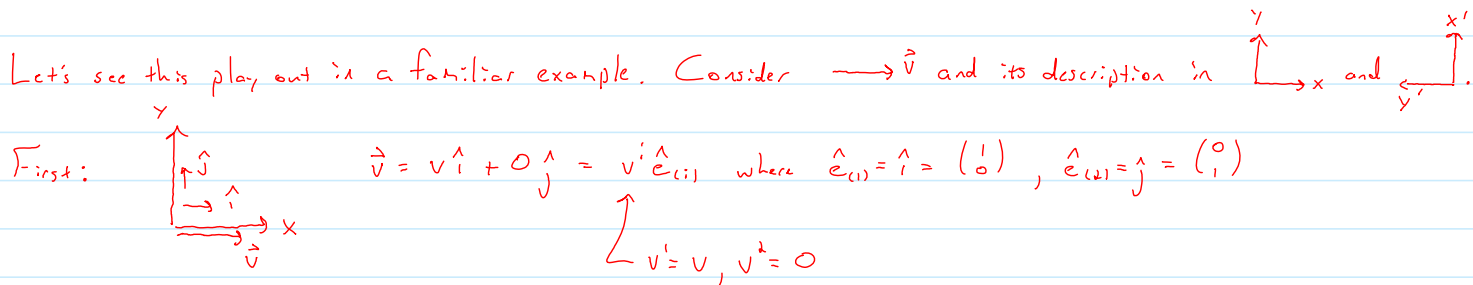 Let's see this play out in a familiar example. Consider ⟶ v⃗ and its description in Y X and X' Y'.
First: Y ĵ î X v⃗ v⃗ = v î + 0 ĵ = vⁱ ê₍ᵢ₎ where ê₍₁₎ = î = (1 0), ê₍₂₎ = ĵ = (0 1)
v¹ = v, v² = 0